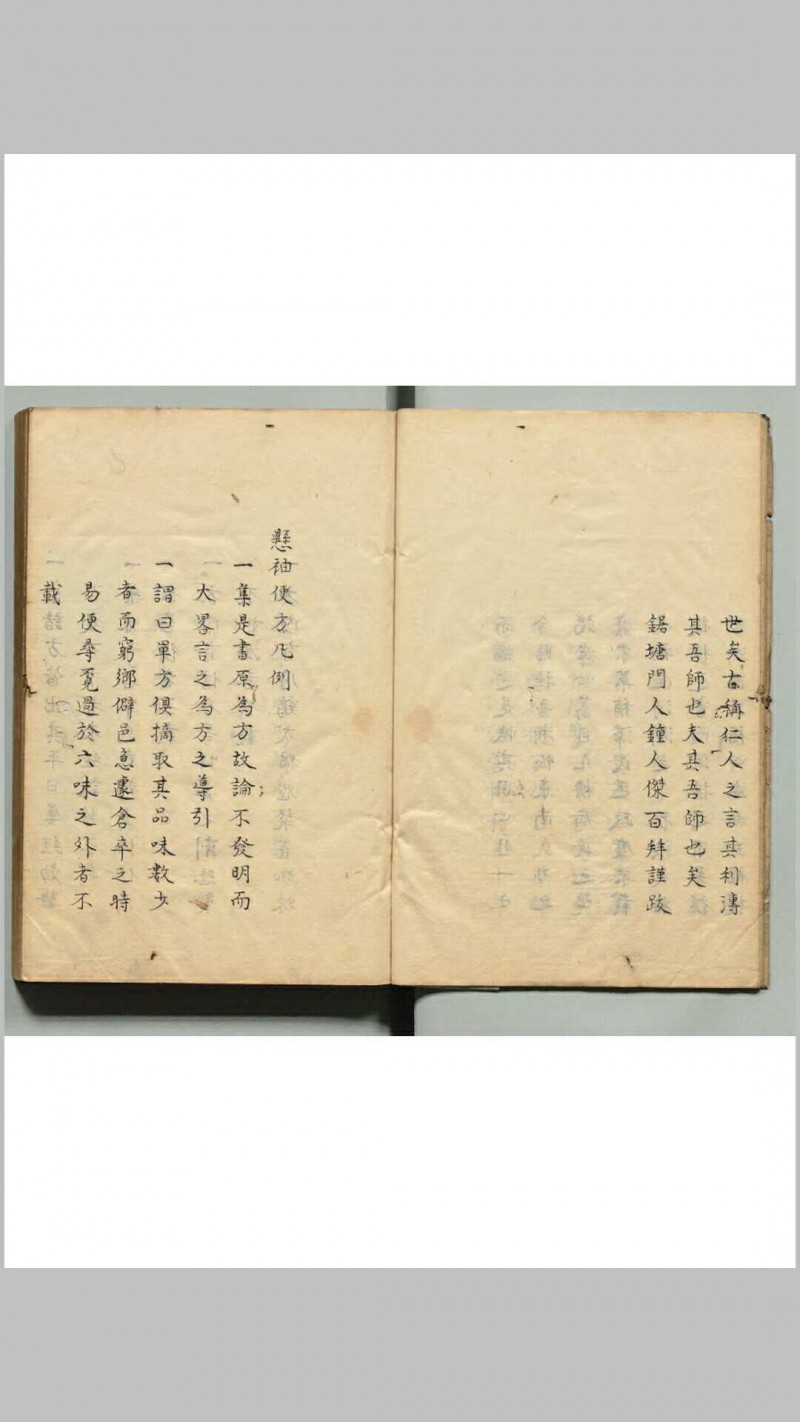 世矣古稱仁人之言其利溥
其吾師也夫其吾師也矣
鋸塘門人鐘人傑百拜謹跋
懸袖便方凡例
一集是書原為方故論不發明而
大畧言之為方之導引
一謂曰單方俱摘取其品味數少
者而窮鄉僻邑急遽倉卒之時
易便尋覓過於六味之外者不
載